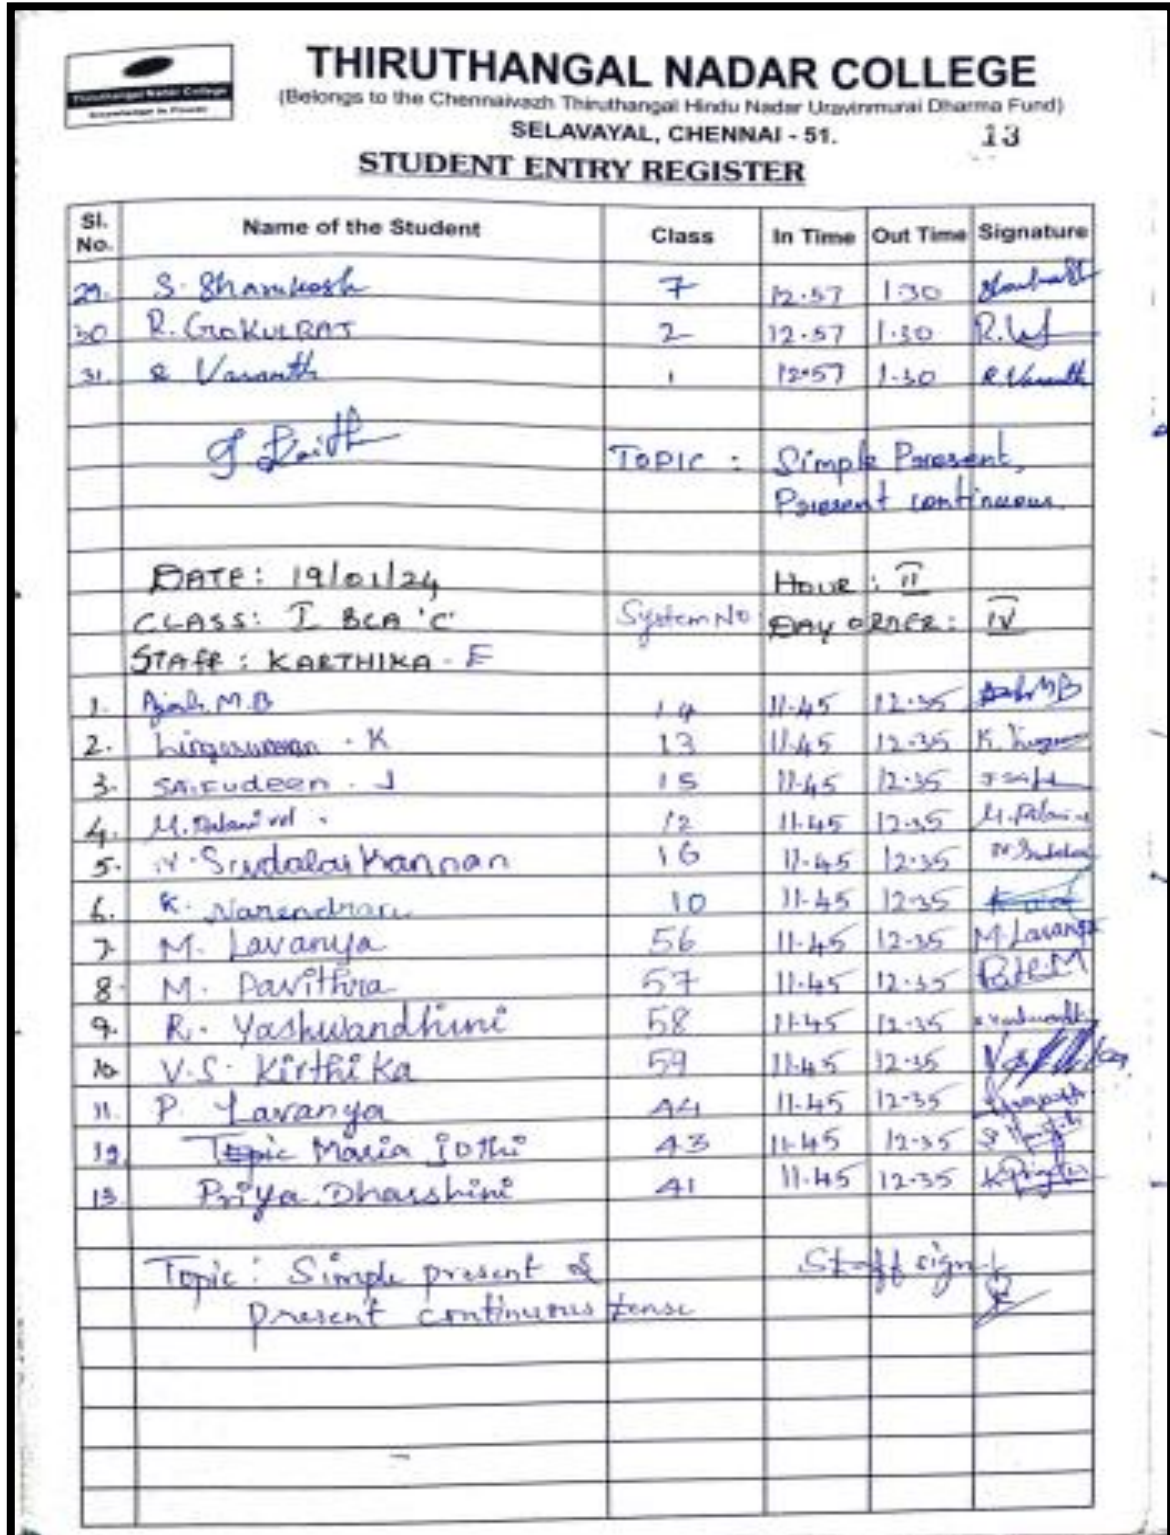 Thiruthangal Nadar College
Knowledge is Power
THIRUTHANGAL NADAR COLLEGE
(Belongs to the Chennaivazh Thiruthangal Hindu Nadar Uravinmurai Dharma Fund)
SELAVAYAL, CHENNAI - 51. 13
STUDENT ENTRY REGISTER
Sl. No. Name of the Student Class In Time Out Time Signature
29. S. 7 12.57 1.30
30 R. GOKULRAJ 2 12.57 1.30
31. R Vasanth 1 12.57 1.30 R. Vasanth
TOPIC : Simple Present,
Present continuous.
DATE: 19/01/24 HOUR : II
CLASS: I BCA 'C' System No DAY ORDER: IV
STAFF : KARTHIKA - E
1. M.B 14 11.45 12.35
2. K 13 11.45 12.35 K.
3. SAIFUDEEN . J 15 11.45 12.35
4. M. Palanivel . 12 11.45 12.35
5. N. Sudalai Kannan 16 11.45 12.35
6. K. Narendran 10 11.45 12.35
7. M. Lavanya 56 11.45 12.35 M. Lavanya
8. M. Pavithra 57 11.45 12.35
9. R. Yashwandhini 58 11.45 12.35
10. V.S. Kirthika 59 11.45 12.35
11. P. Lavanya 44 11.45 12.35
12. Maria jothi 43 11.45 12.35
13 Priya Dharshini 41 11.45 12.35
Topic : Simple present & Staff sign
present continuous tense